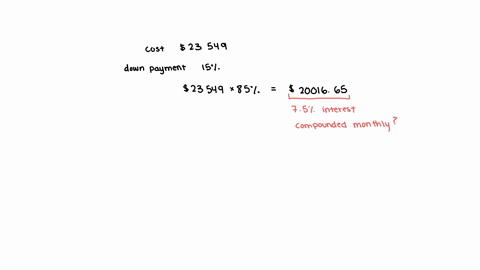 cost $23 549
down payment 15%
$23549 × 85% = $ 20016.65
7.5% interest
compounded monthly?